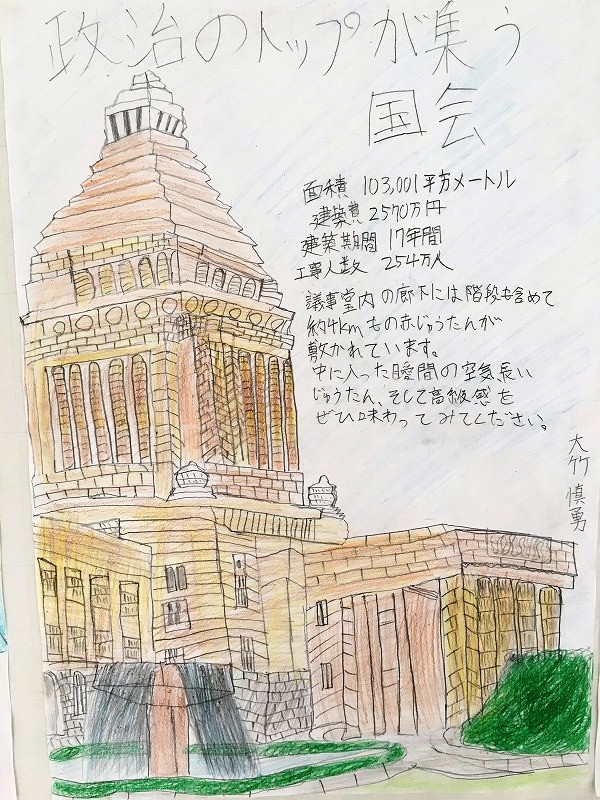 政治のトップが集う
国会
面積 103,001平方メートル
建築費 2570万円
建築期間 17年間
工事人数 254万人
議事堂内の廊下には階段も含めて
約4kmもの赤じゅうたんが
敷かれています。
中に入った瞬間の空気、長い
じゅうたん、そして高級感を
ぜひ味わってみてください。
大竹 慎勇